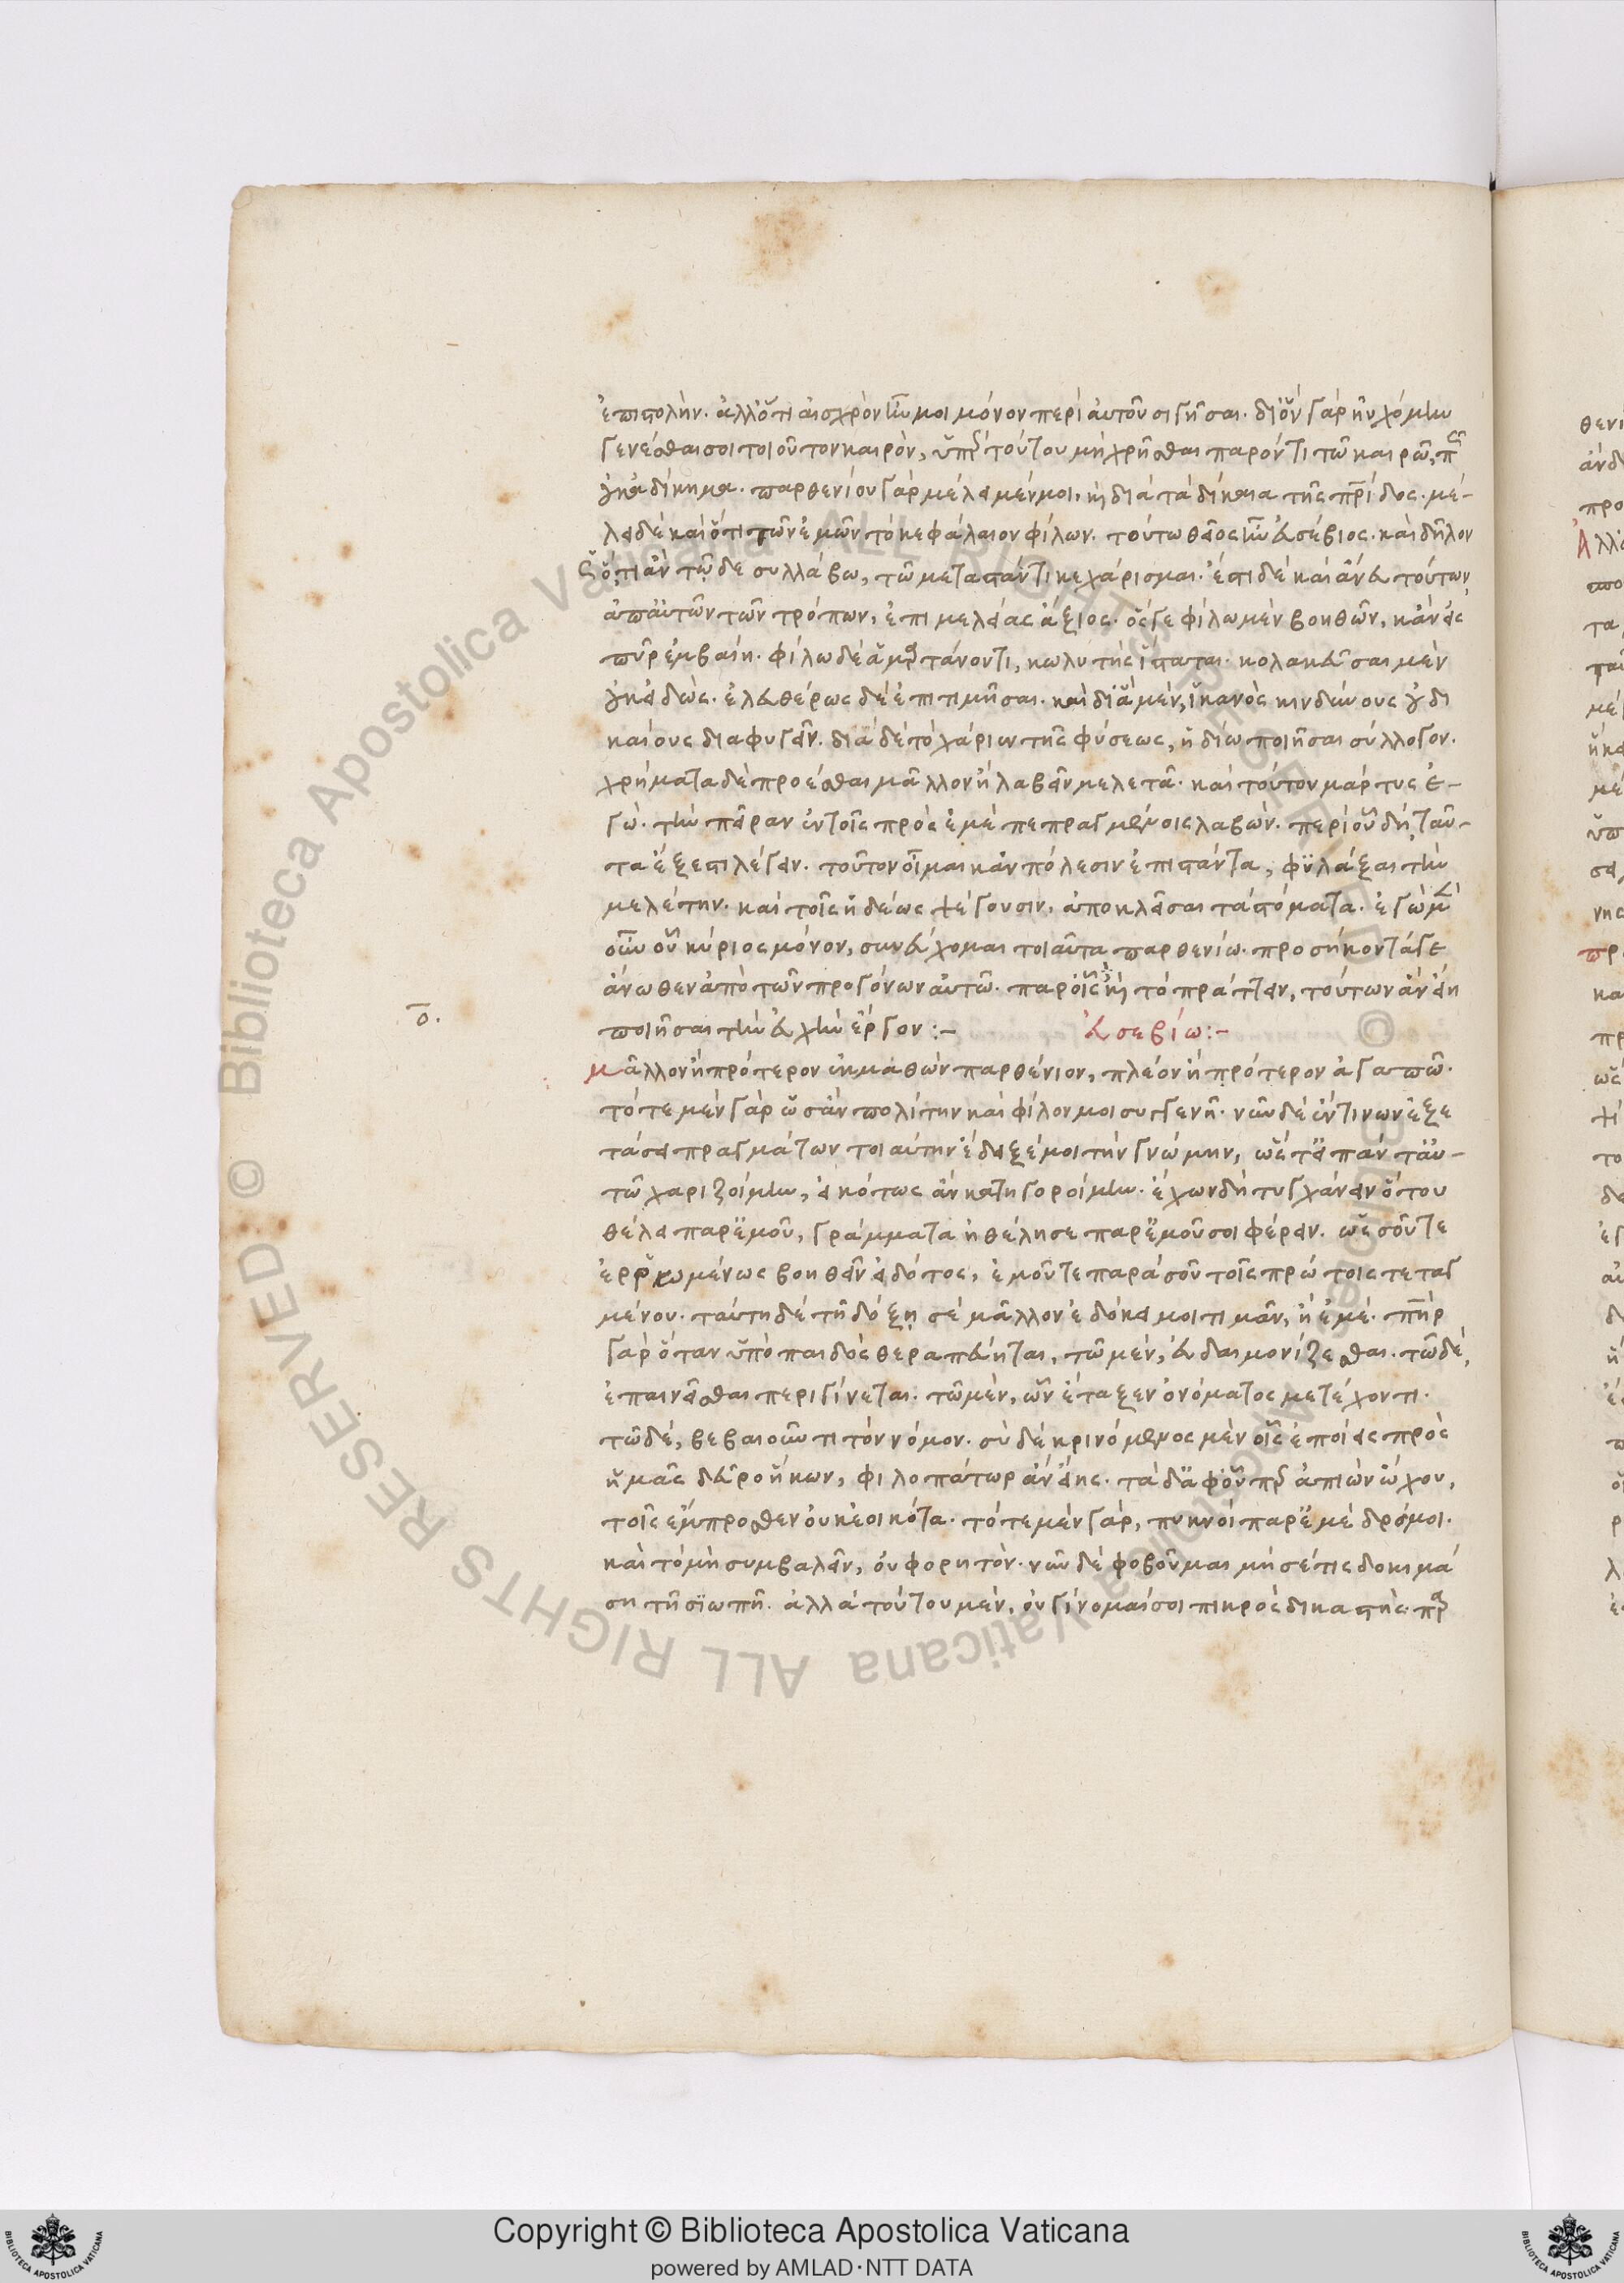 ἐπιστολήν. ἀλλ' ὅτι αἰσχρὸν ἦν μοι μόνον περὶ αὐτοῦ σιγῆσαι. δι' ὃν γὰρ ηὐχόμην
γενέσθαι σοι τοιοῦτον καιρὸν, ὑπὲρ τούτου μὴ χρῆσθαι παρόντι τῷ καιρῷ, πῶς
οὐκ ἀδίκημα. παρθενίου γὰρ μέλει μέν μοι, καὶ διὰ τὰ δίκαια τῆς πατρίδος. μέ-
λει δὲ καὶ ὅτι τῶν ἐμῶν τὸ κεφάλαιον φίλων. τούτῳ θεῖος ἦν εὐσέβιος. καὶ δῆλον
ὅτι ἂν τῷδε συλλάβω, τῷ μεταστάντι κεχάρισμαι. ἔστι δὲ καὶ ἄνευ τούτων,
ἀπ' αὐτῶν τῶν τρόπων, ἐπιμελείας ἄξιος. ὅς γε φίλῳ μὲν βοηθῶν, κἂν εἰς
πῦρ ἐμβαίη. φίλῳ δὲ ἁμαρτάνοντι, κωλυτὴς ἵσταται. κολακεῦσαι μὲν
οὐκ εἰδώς. ἐλευθέρως δὲ ἐπιτιμῆσαι. καὶ δι' ἃ μὲν, ἱκανὸς κινδύνους οὐ δι
καίους διαφυγεῖν. διὰ δὲ τὸ χάριεν τῆς φύσεως, ἡδίω ποιῆσαι σύλλογον.
χρήματα δὲ προέσθαι μᾶλλον ἢ λαβεῖν μελετᾷ. καὶ τούτου μάρτυς ἐ-
γώ. τὴν πεῖραν ἐν τοῖς πρὸς ἐμὲ πεπραγμένοις λαβών. περὶ οὗ δὴ ταῦ-
τα ἔξεστι λέγειν. τοῦτον οἶμαι κἂν πόλεσιν ἐπιστάντα, φυλάξαι τὴν
μελέτην. καὶ τοῖς ἡδέως ψέγουσιν, ἀποκλεῖσαι τὰ στόματα. ἐγὼ μὲν
οὖν οὗ κύριος μόνον, συνεύχομαι τοιαῦτα παρθενίῳ. προσήκοντά γε
ἄνωθεν ἀπὸ τῶν προγόνων αὐτῷ. παρ' οἷς δὲ καὶ τὸ πράττειν, τούτων ἂν εἴη
ποιῆσαι τὴν εὐχὴν ἔργον :- εὐσεβίῳ :-
ο̄.
μᾶλλον ἢ πρότερον ἐκμαθὼν παρθένιον, πλέον ἢ πρότερον ἀγαπῶ.
τότε μὲν γὰρ ὡσὰν πολίτην καὶ φίλον μοι συγγενῆ. νῦν δὲ ἔν τινων ἐξε
τάσει πραγμάτων τοιαύτην ἔδειξέ μοι τὴν γνώμην, ὥστ' εἰ πάντ' αὐ-
τῷ χαριζοίμην, εἰκότως ἂν κατηγοροίμην. ἔχων δὴ τυγχάνειν ὅτου
θέλει παρ' ἐμοῦ, γράμματα ἠθέλησε παρ' ἐμοῦ σοι φέρειν. ὡς σοῦ τε
ἐρρωμένως βοηθεῖν εἰδότος, ἐμοῦ τε παρὰ σοῦ τοῖς πρώτοις τεταγ
μένου. ταύτῃ δὲ τῇ δόξῃ σὲ μᾶλλον ἐδόκει μοι τιμᾶν, ἢ ἐμέ. πατὴρ
γὰρ ὅταν ὑπὸ παιδὸς θεραπεύηται, τῷ μὲν, εὐδαιμονίζεσθαι. τῷ δὲ,
ἐπαινεῖσθαι περιγίνεται. τῷ μὲν, ὧν ἔταξεν ὀνόματος μετέχοντι.
τῷ δὲ, βεβαιοῦντι τὸν νόμον. σὺ δὲ κρινόμενος μὲν οἷς ἐποίεις πρὸς
ἡμᾶς δεῦρο ἥκων, φιλοπάτωρ ἂν εἴης. τὰ δ' ἀφ' οὗπερ ἀπιὼν ᾤχου,
τοῖς ἔμπροσθεν οὐκ ἐοικότα. τότε μὲν γὰρ, πυκνοὶ παρ' ἐμὲ δρόμοι.
καὶ τὸ μὴ συμβαλεῖν, οὐ φορητόν. νῦν δὲ φοβοῦμαι μὴ σέ τις δοκιμά
σῃ τῇ σιωπῇ. ἀλλὰ τούτου μὲν, οὐ γίνομαί σοι πικρὸς δικαστής. παρ
Copyright © Biblioteca Apostolica Vaticana
powered by AMLAD·NTT DATA